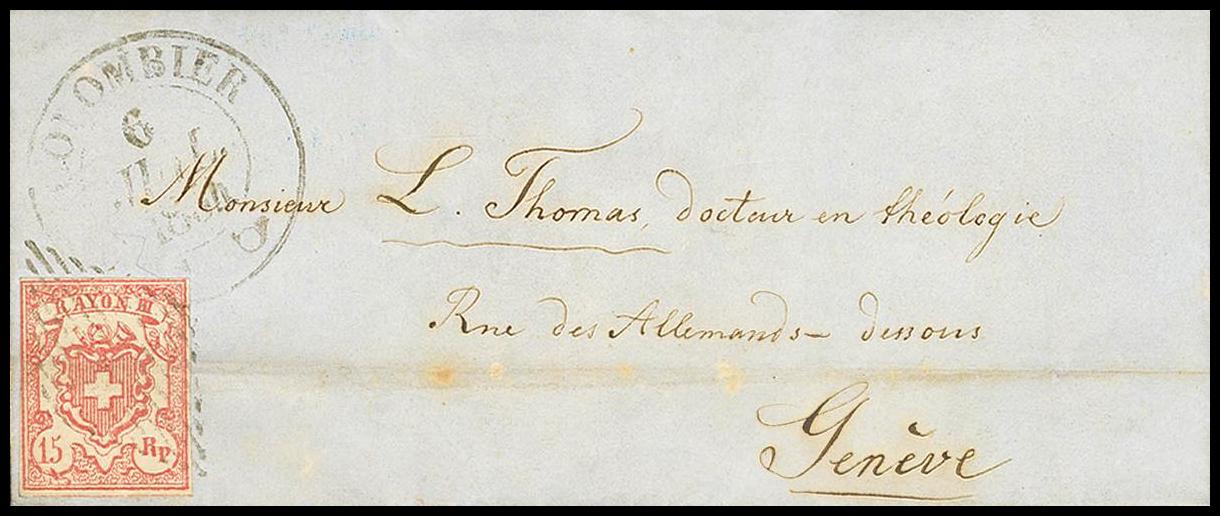 COLOMBIER
6
JUIL
Monsieur L. Thomas, docteur en théologie
Rue des Allemands - dessous
Genève
RAYON III
15 Rp.